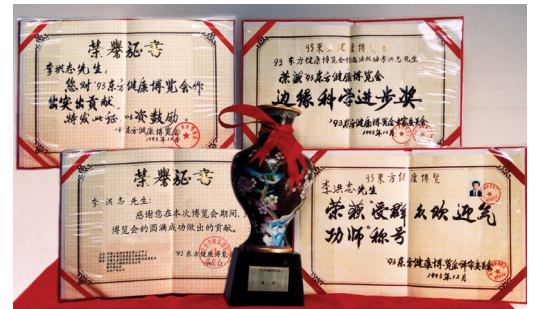 荣誉证书
李洪志先生:
您对'93东方健康博览会作
出突出贡献,
特发此证 以资鼓励。
'93东方健康博览会
1993年12月
93东方健康博览会
李洪志先生
荣获'93东方健康博览会
边缘科学进步奖
'93东方健康博览会评审委员会
1993年12月
荣誉证书
李洪志 先生:
感谢您在本次博览会期间,为
博览会的圆满成功做出的贡献。
东方健康博览会
东方健康博览
李洪志先生
荣获"受群众欢迎气
功师"称号
'93东方健康博览会评审委员会
1993年12月